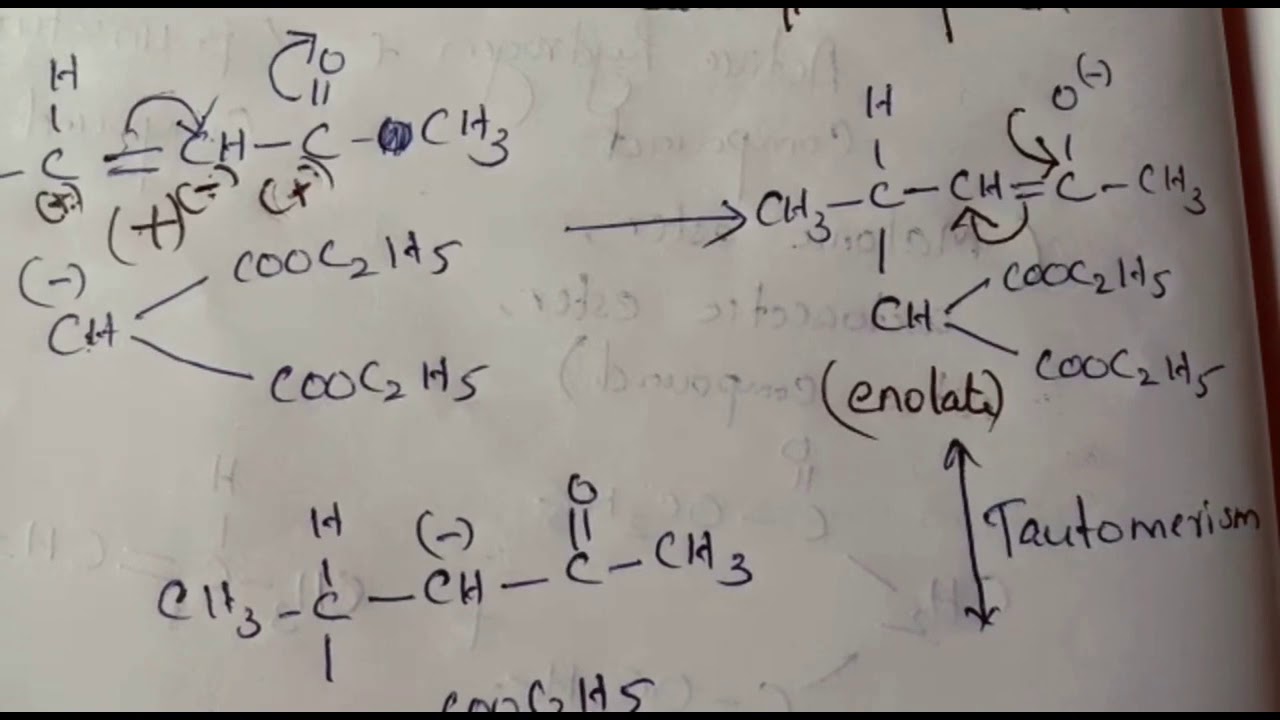 H O
– C = CH – C – CH3
(+) (+) (-) (+)
(-) COOC2H5
CH
COOC2H5
O(-)
H
CH3 – C – CH = C – CH3
CH COOC2H5
COOC2H5
(enolate)
Tautomerism
H (-) O
CH3 – C – CH – C – CH3
COOC2H5